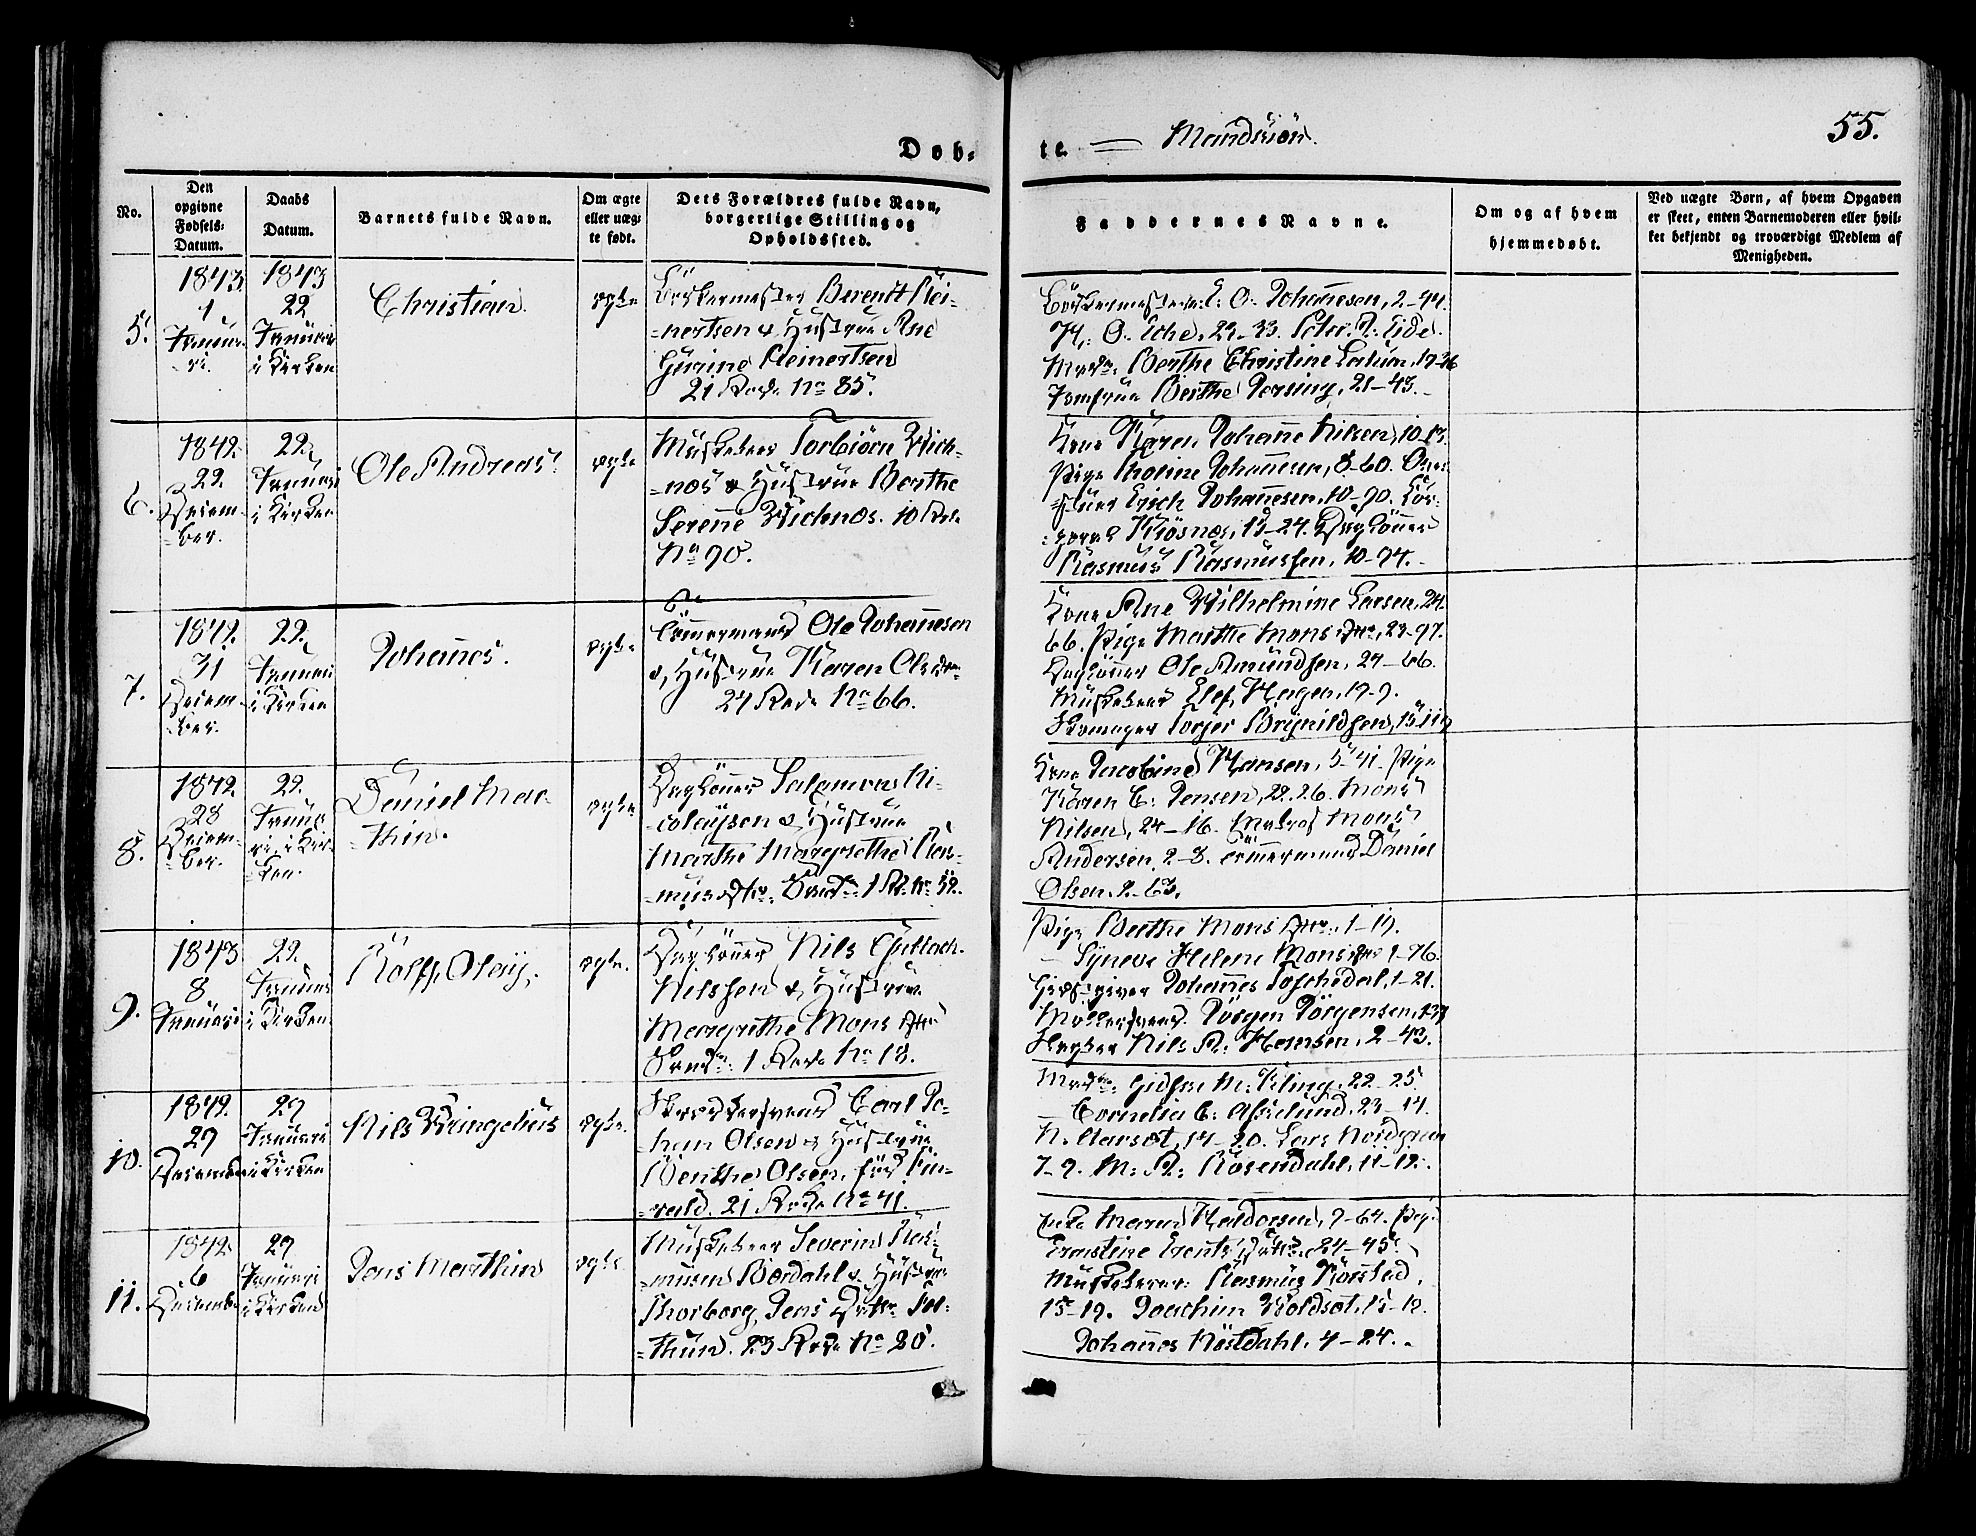 Døb-
te. — Mandkiøn.
55.
No.
Den opgivne Fødsels-Datum.
Daabs Datum.
Barnets fulde Navn.
Om ægte eller uægte født.
Dets Forældres fulde Navn, borgerlige Stilling og Opholdssted.
Faddernes Navne.
Om og af hvem hjemmedøbt.
Ved uægte Børn, af hvem Opgaven er skeet, enten Barnemoderen eller hvilket bekjendt og troværdigt Medlem af Menigheden.
5.
1843
1
Januari.
1843
22
Januari
i Kirken
Christian.
ægte
Bödkermester Berendt Rei-
-nertsen & Hustrue Ane
Gurine Reinertsen
21 Rode No 85.
Bödkermestere: E. O. Johannesen, 2-44.
74,: O. Eche, 22-33. Peder A: Eide.
Mad: Berthe Christine
Jomfrue Berthe 21-43.
6.
1842.
22.
Decem-
-ber.
22.
Januari
i Kirken
Ole Andreas.
ægte
Musketeer Torbiörn Wich-
-nös & Hustrue Berthe
Serene Wichnös. 10 Rode
No 90.
Kone Karen Johanne Nilsen, 10-13.
Pige Thorine Johannesen, 8-60.
Erich Johannesen. 10-90.
13-24. Daglönner
Rasmus Rasmussen, 10-74.
7.
1842.
31
Decem-
-ber.
22.
Januari
i Kirken
Johannes.
ægte
Tömmermand Ole Johannesen
& Hustrue Karen Olsdtr.
24 Rode No 66.
Kone Ane Wilhelmine Larsen, 24.
66. Pige Marthe Monsdtr, 23-97.
Daglönner Ole Amundsen, 24-66.
Musketeer Elef Hagen, 19-9.
Skomager Torjer Brynildsen,
8.
1842.
28
Decem-
-ber.
22.
Januari
i Kir-
-ken.
Daniel Mar-
-thin.
ægte
Daglönner Salamon Ni-
-colaysen & Hustrue
Marthe Margrethe Ras-
-musdtr. 1 R. No 52.
Kone Jacobine Hansen, 5-41. Pige
Karen C: Jensen, 22.26. Mons
Nilsen, 24-16. Matros Mons
Andersen, 2-8. Tömmermand Daniel
Olsen. 2-63.
9.
1843
8
Januari
22.
Januari
i Kirken.
Rolf, Olaÿ.
ægte.
Daglönner Nils Gullach
Nilssen & Hustrue
Margrethe Monsdtr
1 Rode No 18.
Pige Berthe Monsdtr: 1-19.
— Syneve Helene Monsdtr 1-76.
Johannes 1-21.
Möllersvend Jörgen Jörgensen,
Nils R: Hansen, 2-43.
10.
1842.
27
December
29
Januari
i Kirken
Nils Wangelius
ægte.
Carl Jo-
-han Olsen & Hustrue
Benthe Olsen, föd Fin-
-vald. 21 Rode No 41.
Mad: M: Kling. 22-25.
— Cornelia C: Asselund. 23-14.
N. Aarsot, 14-20. Lars Nordgrun
7-9. M: A: Rosendahl, 11-12.
11.
1842.
6
December
29
Januari
i Kirken
Jens Marthin
ægte
Musketeer Severin Ras-
-musen Bordahl & Hustrue
Thorborg, Jens Dtr:
-thun. 23 Rode No 20.
Enke Maren Haldorsen, 9-64. Pige
Ernstine Erents Dotter. 24-45.
Musketerer: Rasmus
15-19. Joachim Woldsot. 15-12.
Johannes Röstdahl, 4-24.